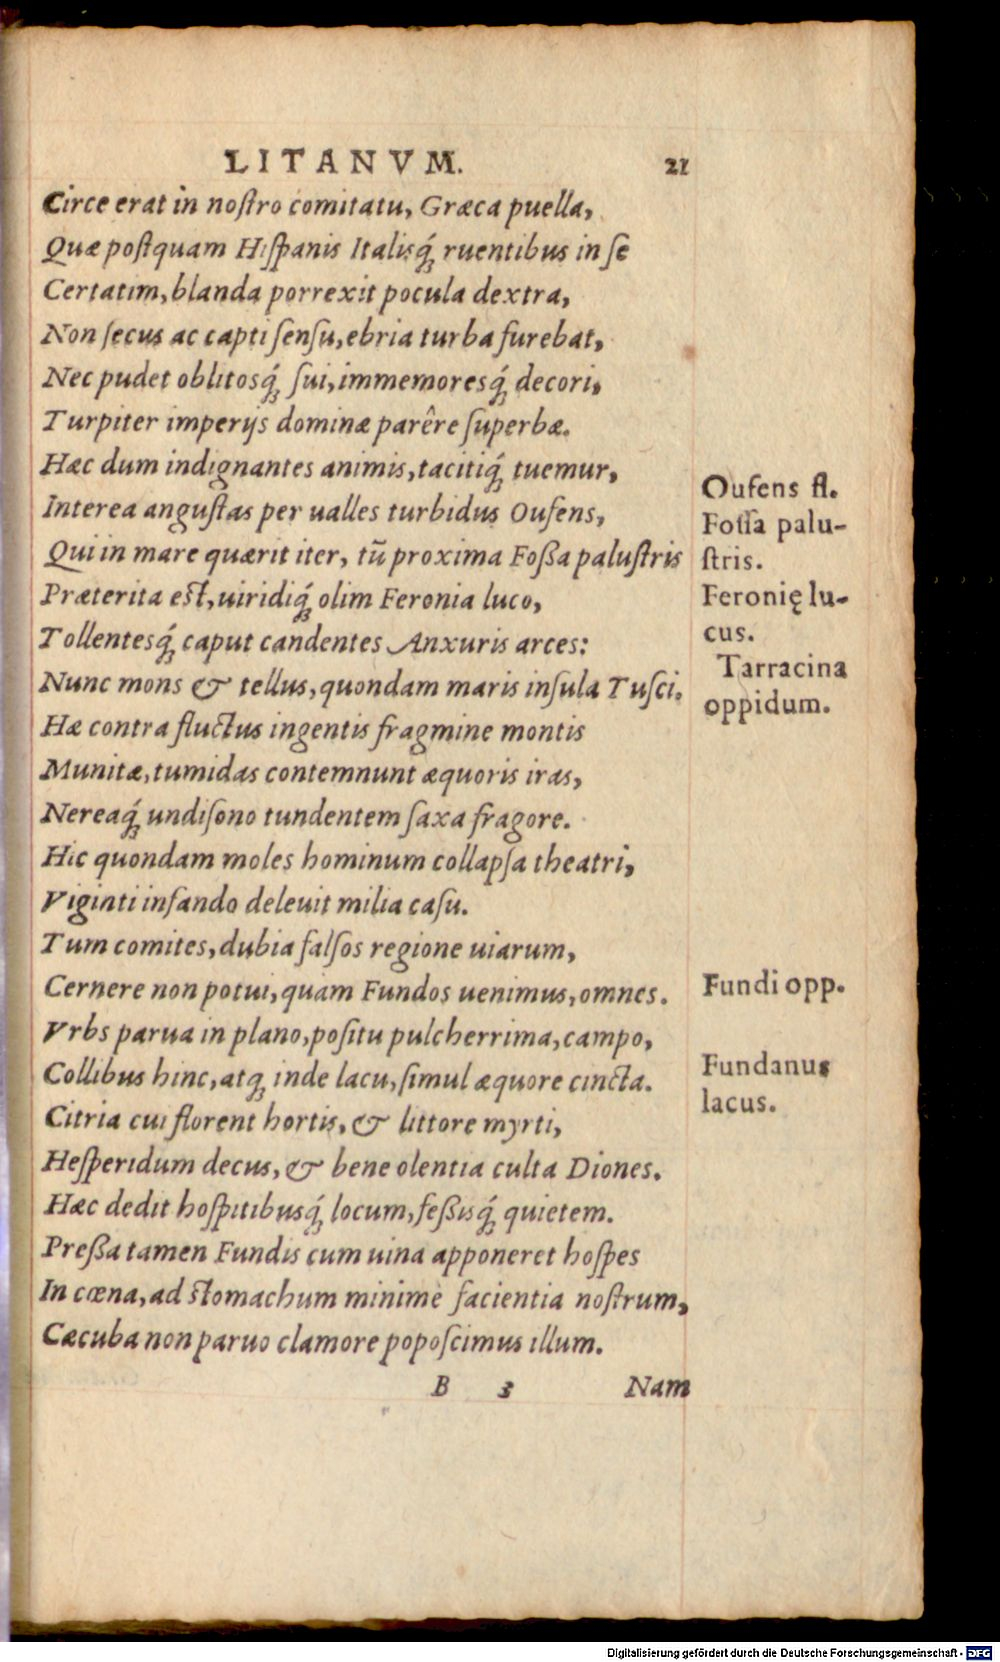 LITANVM. 21
Circe erat in nostro comitatu, Græca puella,
Quæ postquam Hispanis Italisq́ꝫ ruentibus in se
Certatim, blanda porrexit pocula dextra,
Non secus ac capti sensu, ebria turba furebat,
Nec pudet oblitosq́ꝫ sui, immemoresq́ꝫ decori,
Turpiter imperijs dominæ parêre superbæ.
Hæc dum indignantes animis, tacitiq́ꝫ tuemur,
Interea angustas per ualles turbidus Oufens,
Qui in mare quærit iter, tũ proxima Foßa palustris
Præterita est, uiridiq́ꝫ olim Feronia luco,
Tollentesq́ꝫ caput candentes Anxuris arces:
Nunc mons & tellus, quondam maris insula Tusci.
Hæ contra fluctus ingentis fragmine montis
Munitæ, tumidas contemnunt æquoris iras,
Nereaq́ꝫ undisono tundentem saxa fragore.
Hic quondam moles hominum collapsa theatri,
Viginti infando deleuit milia casu.
Tum comites, dubia falsos regione uiarum,
Cernere non potui, quàm Fundos uenimus, omnes.
Vrbs parua in plano, positu pulcherrima, campo,
Collibus hinc, atqꝫ inde lacu, simul æquore cincta.
Citria cui florent hortis, & littore myrti,
Hesperidum decus, & bene olentia culta Diones.
Hæc dedit hospitibusq́ꝫ locum, feßisq́ꝫ quietem.
Preßa tamen Fundis cum uina apponeret hospes
In cœna, ad stomachum minimè facientia nostrum,
Cæcuba non paruo clamore poposcimus illum.
B 3 Nam
Oufens fl.
Fossa palu-
stris.
Feronię lu-
cus.
Tarracina
oppidum.
Fundi opp.
Fundanus
lacus.
Digitalisierung gefördert durch die Deutsche Forschungsgemeinschaft - DFG